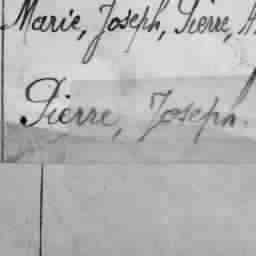 Marie, Joseph, Pierre,
Pierre, Joseph.